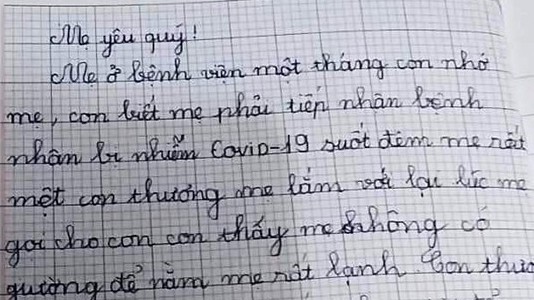 Mẹ yêu quý!
Mẹ ở bệnh viện một tháng con nhớ
mẹ, con biết mẹ phải tiếp nhận bệnh
nhân bị nhiễm Covid-19 suốt đêm mẹ rất
mệt con thương mẹ lắm với lại lúc mẹ
gọi cho con con thấy mẹ không có
giường để nằm mẹ rất lạnh. Con thươ